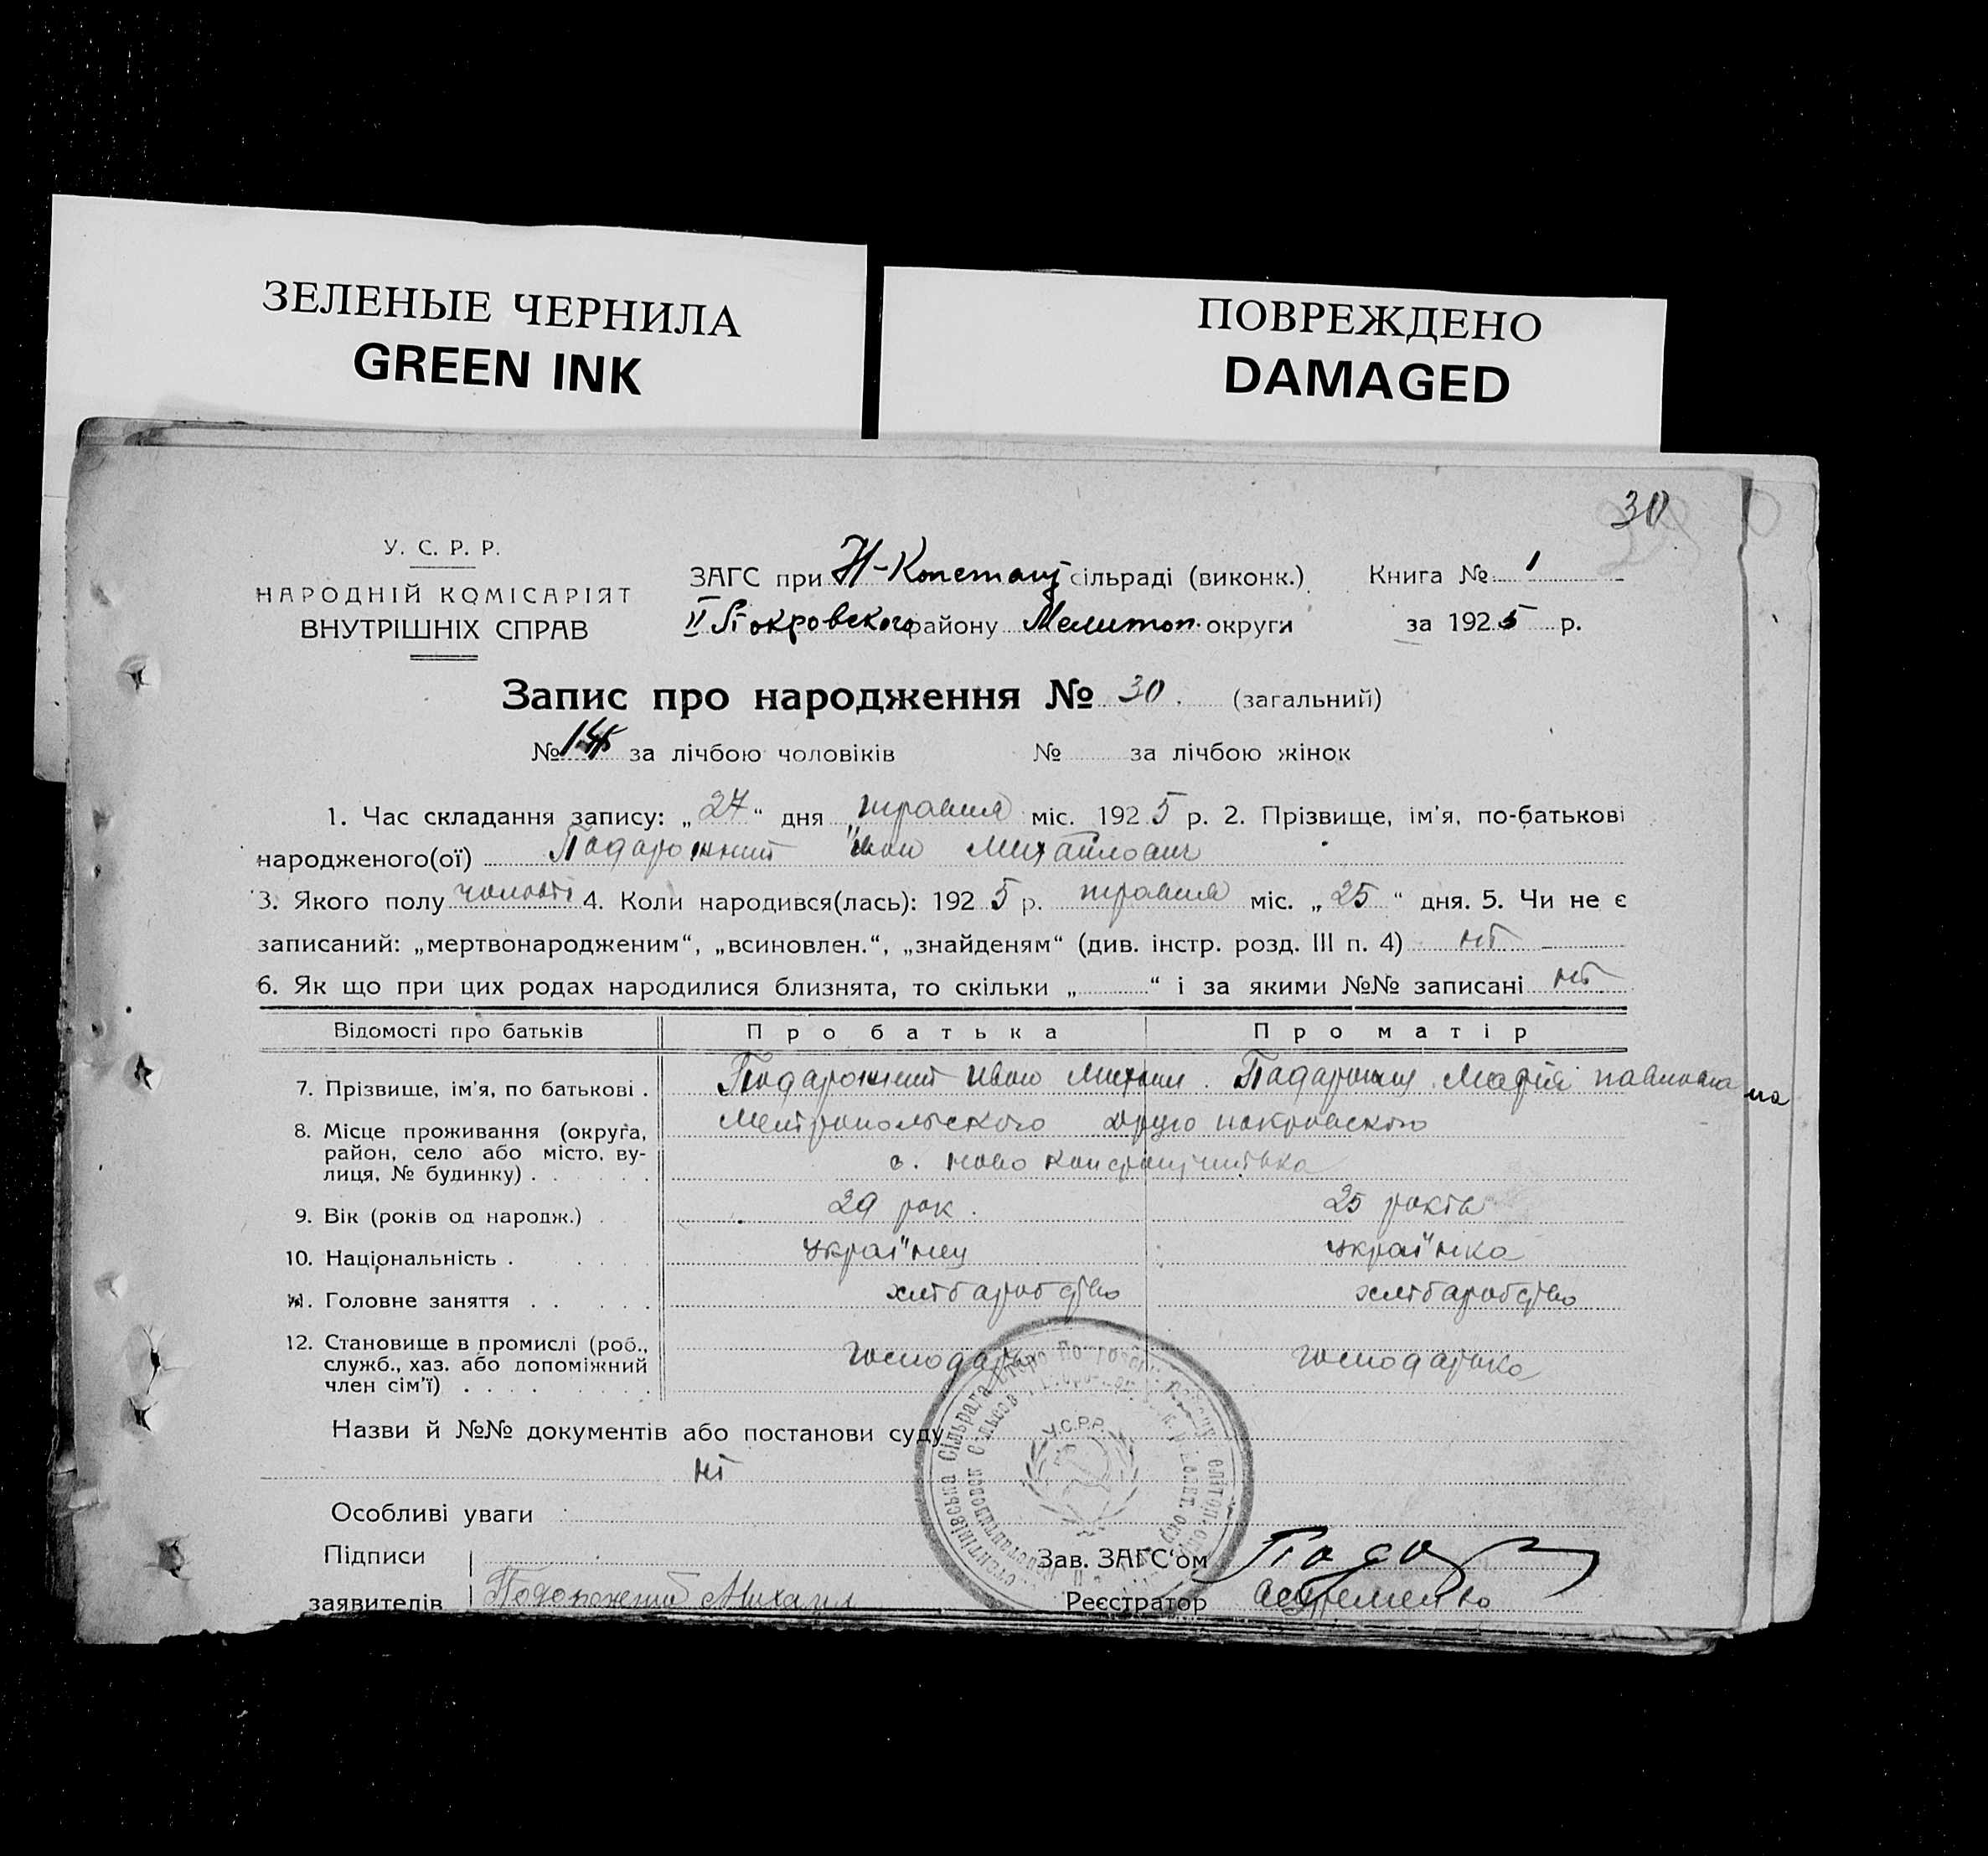 ЗЕЛЕНЫЕ ЧЕРНИЛА
GREEN INK
ПОВРЕЖДЕНО
DAMAGED
30
У. С. Р. Р.
НАРОДНІЙ КОМІСАРІЯТ
ВНУТРІШНІХ СПРАВ
ЗАГС при Н-Констанц сільраді (виконк.) Книга № 1
II Покровского району Мелитоп. округи за 1925 р.
Запис про народження № 30. (загальний)
№ 14 за лічбою чоловіків № за лічбою жінок
1. Час складання запису: „27“ дня травня міс. 1925 р. 2. Прізвище, ім'я, по-батькові
народженого(ої) Падарожний Іван Михайлович
3. Якого полу чоловчі 4. Коли народився(лась): 1925 р. травня міс. „25“ дня. 5. Чи не є
записаний: „мертвонародженим“, „всиновлен.“, „знайденям“ (див. інстр. розд. III п. 4) ні
6. Як що при цих родах народилися близнята, то скільки „ “ і за якими №№ записані ні
Відомості про батьків Про батька Про матір
7. Прізвище, ім'я, по батькові . Падарожний Михаил . Падарожня Марія павловна
8. Місце проживання (округа, друго покровского
район, село або місто, ву-
лиця, № будинку) . с. ново
9. Вік (років од народж.) . 29 рок . 25 років
10. Національність . україˮнец україˮнка
11. Головне заняття . . хлібаробство хлібаробство
12. Становище в промислі (роб., господар господарка
служб., хаз. або допоміжний
член сім'ї) . . .
Назви й №№ документів або постанови суду
ні
Особливі уваги
Підписи Зав. ЗАГС'ом
заявителів Подорожний Михаил Реєстратор
У.С.Р.Р.